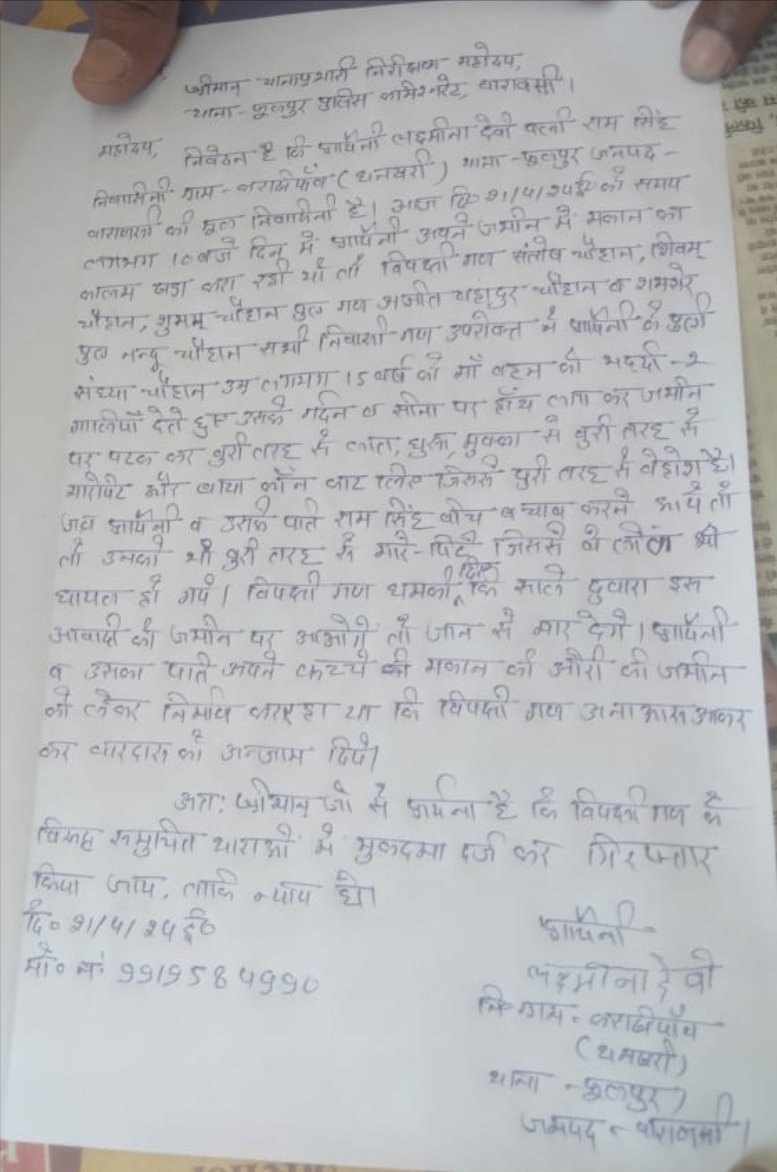 श्रीमान् थानाप्रभारी निरीक्षक महोदय,
थाना - फूलपुर पुलिस कमिश्नरेट, वाराणसी।
महोदय,
निवेदन है कि प्रार्थिनी लक्ष्मीना देवी पत्नी राम सिंह
निवासिनी ग्राम - करखियाँव (धनखरी) थाना - फूलपुर जनपद -
वाराणसी की मूल निवासिनी है। आज दि० 21/4/24ई० को समय
लगभग 10 बजे दिन में प्रार्थिनी अपने जमीन में मकान का
कालम खड़ा करा रही थी तो विपक्षी गण संतोष चौहान, शिवम्
चौहान, शुभम् चौहान पुत्र गण अजीत बहादुर चौहान व शमशेर
पुत्र नन्दू चौहान सभी निवासी गण उपरोक्त ने प्रार्थिनी के पुत्री
संध्या चौहान उम्र लगभग 15 वर्ष को माँ बहन की भद्दी - २
गालियाँ देते हुए उसके गर्दन व सीना पर हाँथ लगा कर जमीन
पर पटक कर बुरी तरह से लात, घुसा, मुक्का से बुरी तरह से
मारेपिटे और बाया कान काट लिए जिससे पुरी तरह से बेहोश है।
जब प्रार्थिनी व उसके पति राम सिंह बीच बचाव करने आये तो
तो उनको भी बुरी तरह से मारे-पिटे जिससे वे लोग भी
घायल हो गये। विपक्षी गण धमकी दिए कि साले दुबारा इस
आबादी की जमीन पर आओगे तो जान से मार देंगे। प्रार्थिनी
व उसका पति अपने कच्चे की मकान की ओरी की जमीन
को लेकर निर्माण करा रहा था कि विपक्षी गण अनायास आकर
कर वारदात को अन्जाम दिये।
अतः श्रीमान् जी से प्रार्थना है कि विपक्षी गण के
विरुद्ध समुचित धाराओं में मुकदमा दर्ज कर गिरफ्तार
किया जाय, ताकि न्याय हो।
दि० 21/4/24 ई०
मो० नं० 9919584990
प्रार्थिनी
लक्ष्मीना देवी
नि० ग्राम - करखियाँव
(धनखरी)
थाना - फूलपुर
जनपद - वाराणसी।